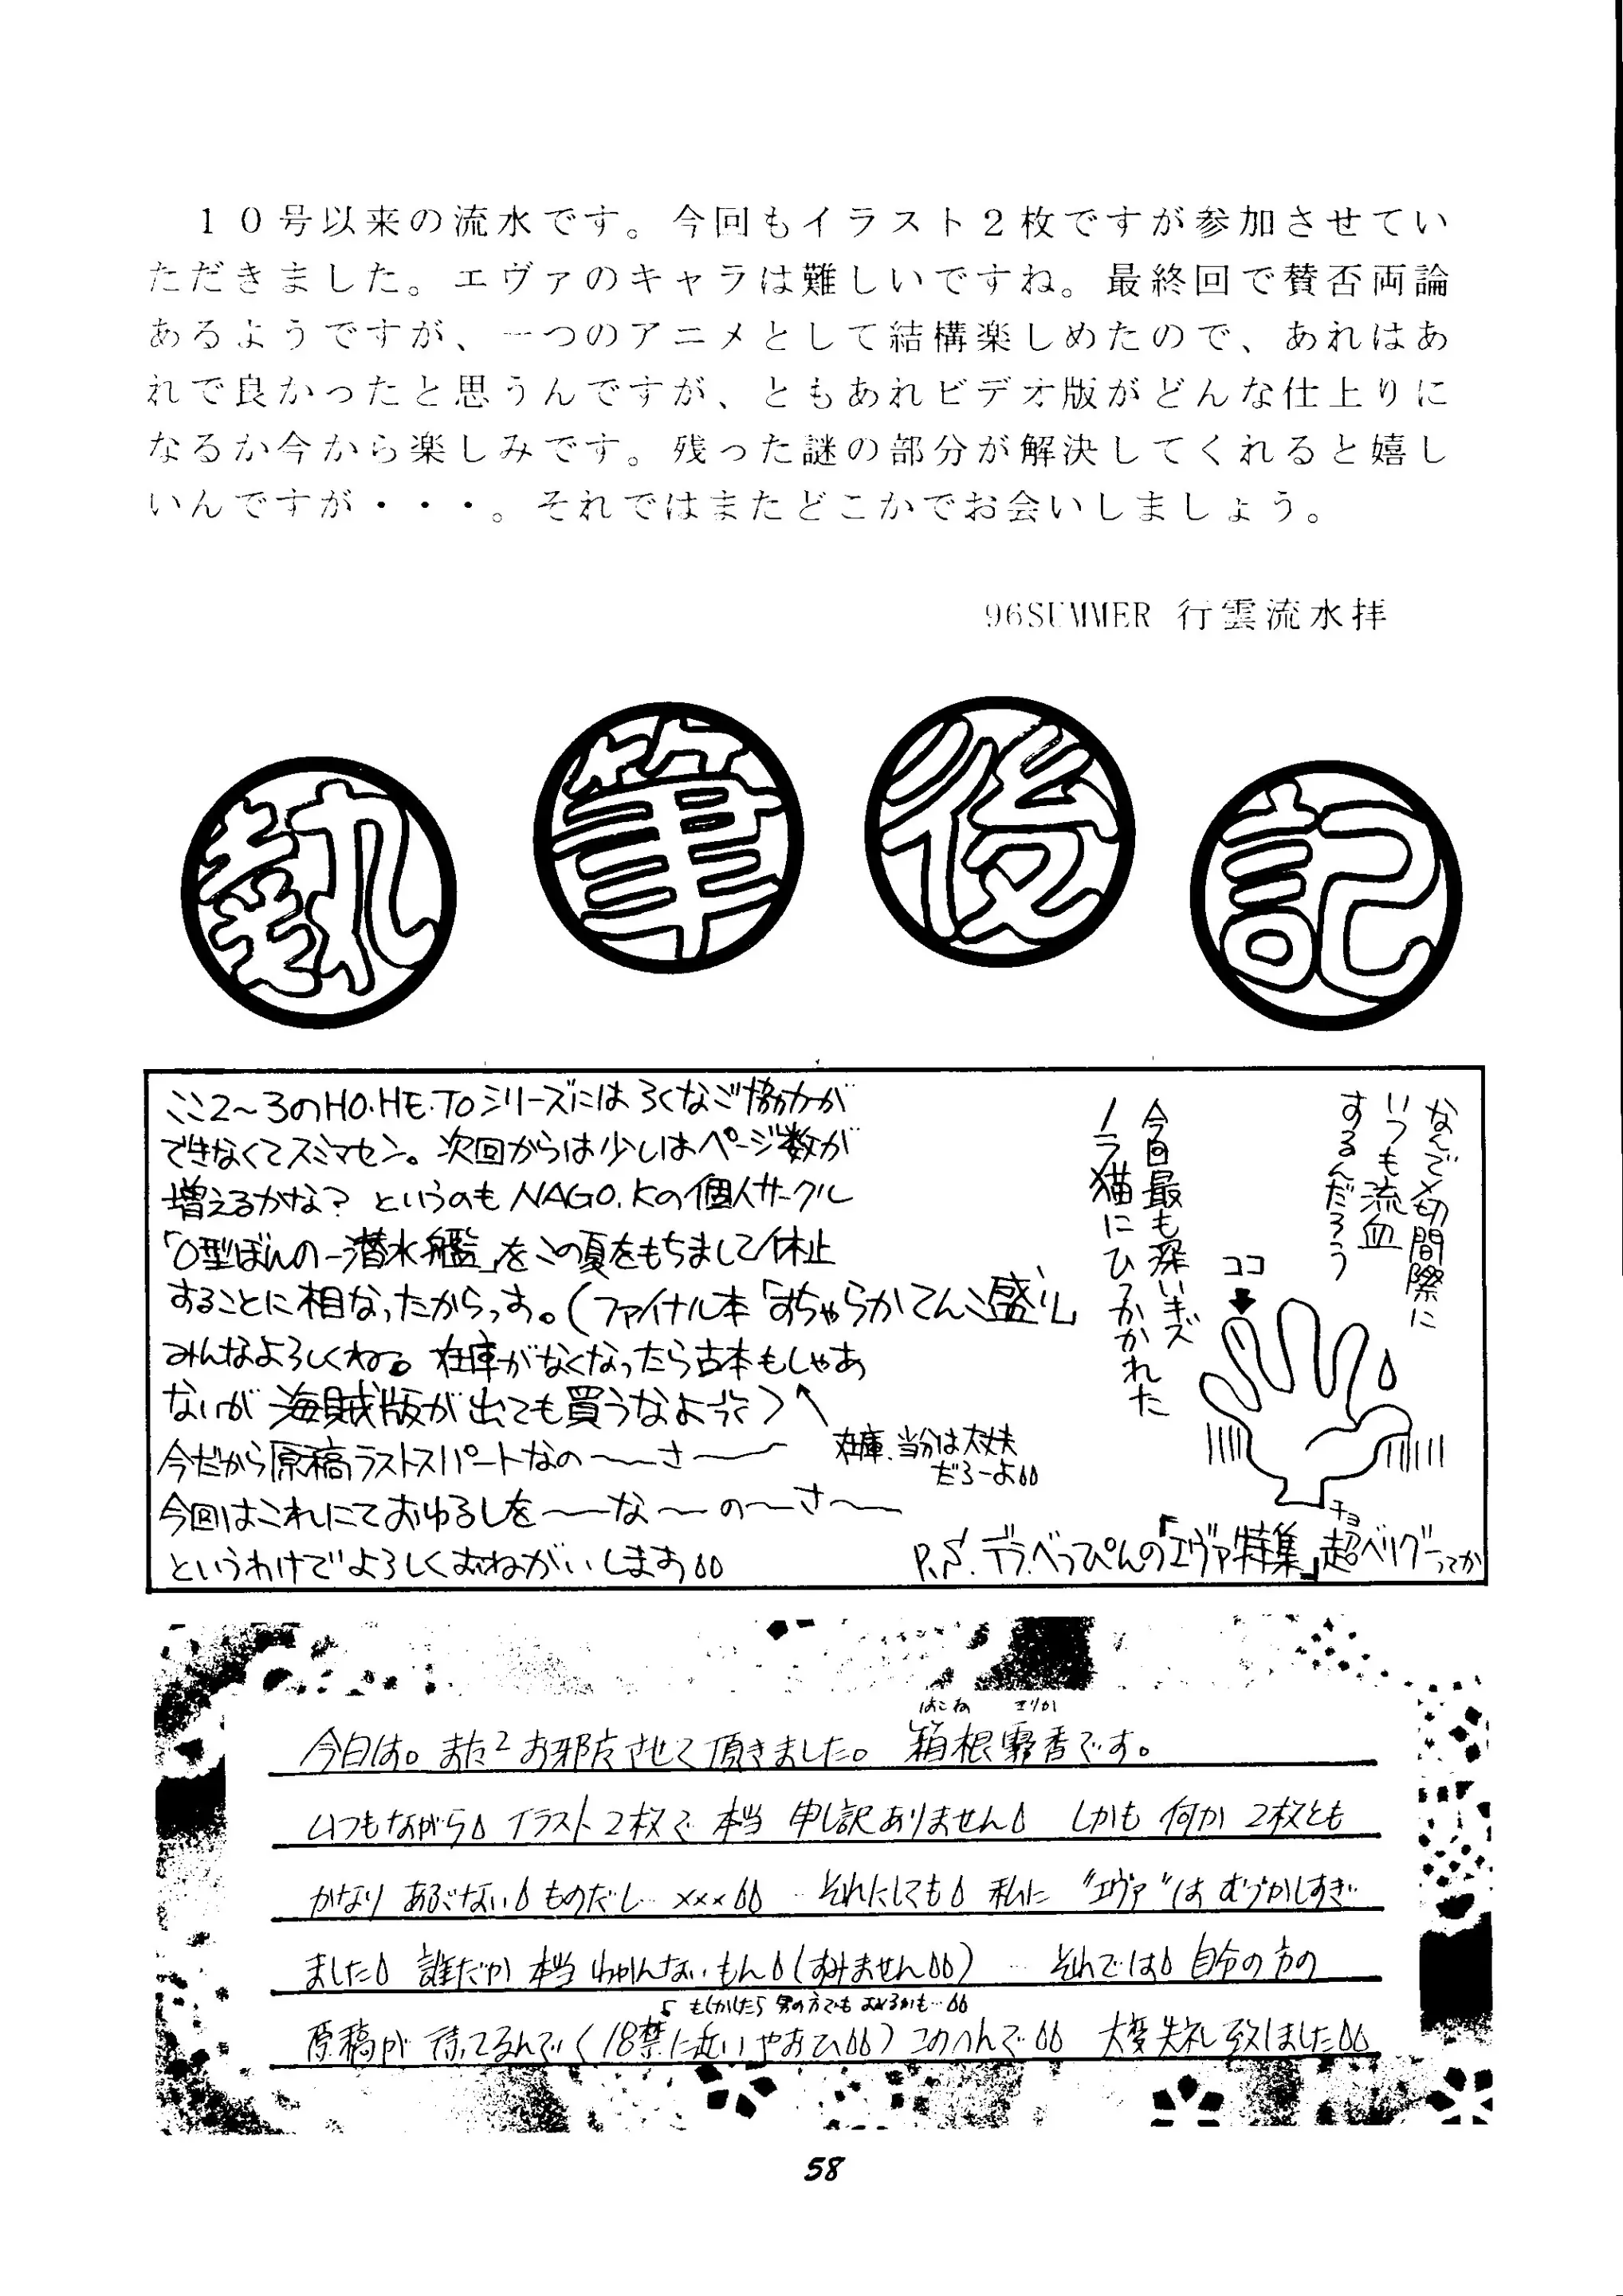 １０号以来の流水です。今回もイラスト２枚ですが参加させてい
ただきました。エヴァのキャラは難しいですね。最終回で賛否両論
あるようですが、一つのアニメとして結構楽しめたので、あれはあ
れで良かったと思うんですが、ともあれビデオ版がどんな仕上りに
なるか今から楽しみです。残った謎の部分が解決してくれると嬉し
いんですが・・・。それではまたどこかでお会いしましょう。
96SUMMER 行雲流水拝
執筆後記
ここ2〜3のHO・HE・TOシリーズにはろくなご協力が
できなくてスミマセン。次回からは少しはページ数が
増えるかな？というのもNAGO.Kの個人サークル
「O型ぼんのー潜水艦」をこの夏をもちまして休止
することに相なったからっす。(ファイナル本「おちゃらかてんこ盛り」
みんなよろしくね。在庫がなくなったら古本もしゃあ
ないが海賊版が出ても買うなよ
在庫、当分は大丈夫
だろーよ
今だから原稿ラストスパートなの〜〜さ〜〜
今回はこれにておゆるしを〜〜な〜の〜さ〜
というわけでよろしくおねがいします
なんで〆切間際に
いつも流血
するんだろう
ココ
今回最も深いキズ
ノラ猫にひっかかれた
P.S. デラべっぴんの「エヴァ特集」超ベリグーってか
チョ
はこね きりか
今日は。また2お邪广させて頂きました。箱根霧香です。
いつもながら イラスト2枚で 本当 申し訳ありません しかも 何か 2枚とも
かなり あぶない ものだし…×××…それにしても 私に "エヴァ"は むづかしすぎ
ました 誰だか 本当 わかんないもん(すみません)…それでは 自分の方の
もしかしたら 男の方でも おるかも…
原稿が 待ってるんで(18禁に近いやおひ) このへんで 大変失礼致しました
58